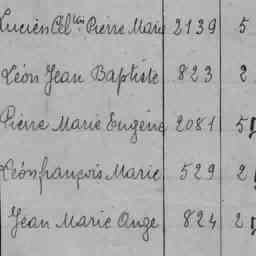 Lucien Cél^tin Pierre Marie 2139 5
Léon Jean Baptiste 823 2
Pierre Marie Eugène 2081 5
Léon françois Marie 529 2
Jean Marie Ange 824 2